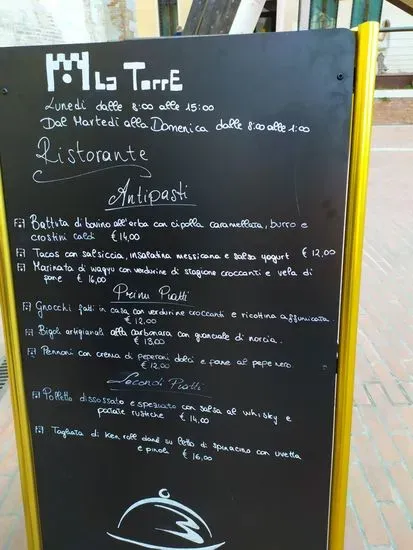 La Torre
Lunedì dalle 8:00 alle 15:00
Dal Martedì alla Domenica dalle 8:00 alle 1:00
Ristorante
Antipasti
Battuta di bovino all'erba con cipolla caramellata, burro e
crostini caldi € 14,00
Tacos con salsiccia, insalatina messicana e salsa yogurt € 12,00
Marinata di wagyu con verdurine di stagione croccanti e vela di
pane € 16,00
Primi Piatti
Gnocchi fatti in casa con verdurine croccanti e ricottina affumicata
€ 12,00
Bigoli artigianali alla carbonara con guanciale di norcia.
€ 13,00
Pennoni con crema di peperoni dolci e pane al pepe nero
€ 12,00
Secondi Piatti
Polletto dissossato e speziato con salsa al whisky e
patate rustiche € 14,00
Tagliata di letto di spinacino con uvetta
e pinoli € 16,00